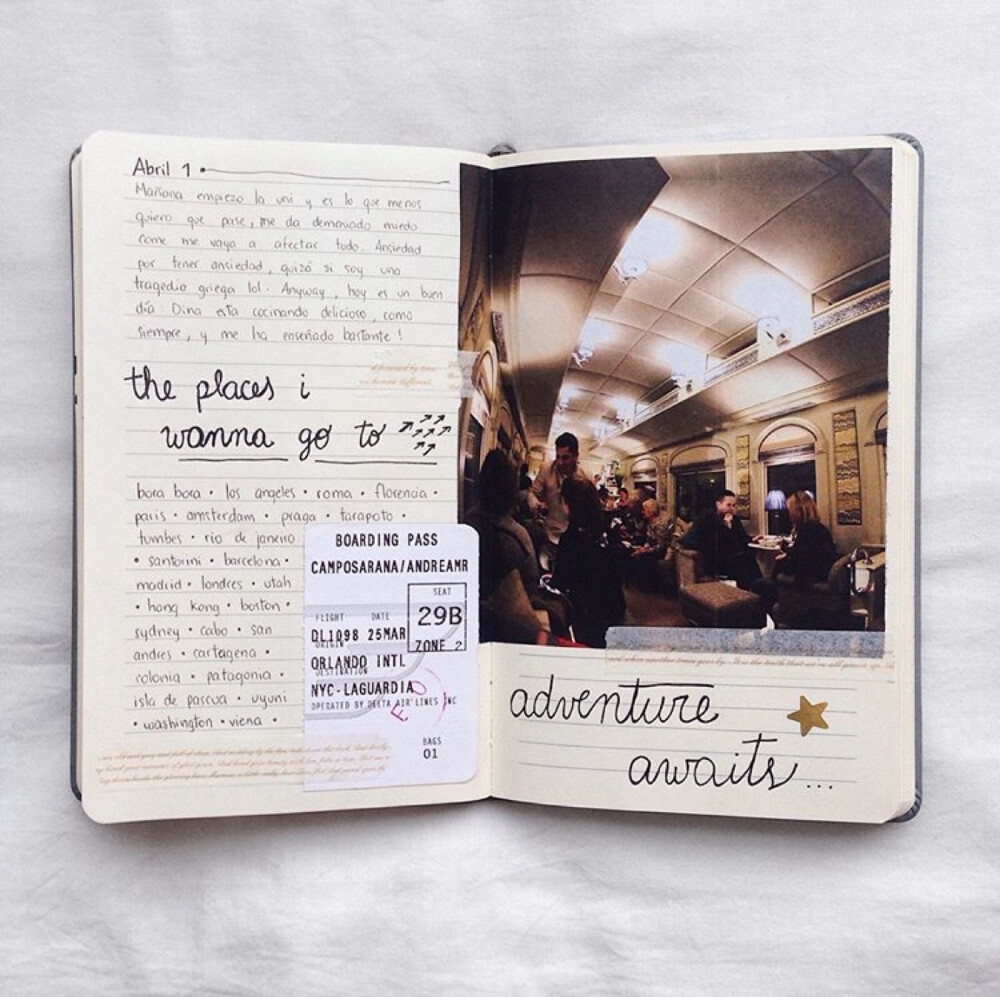 Abril 1
Mañana empiezo la uni y es lo que menos
quiero que pase, me da demasiado miedo
como me vaya a afectar todo. Ansiedad
por tener ansiedad, quizá si soy una
tragedia griega lol. Anyway, hoy es un buen
día. Dina esta cocinando delicioso, como
siempre, y me ha enseñado bastante!
the places i
wanna go to
bora bora • los angeles • roma • florencia •
paris • amsterdam • praga • tarapoto •
tumbes • rio de janeiro
• santorini • barcelona •
madrid • londres • utah
• hong kong • boston •
sydney • cabo • san
andres • cartagena •
colonia • patagonia •
isla de pascua • uyuni
• washington • viena •
BOARDING PASS
CAMPOSARANA/ANDREAMR
SEAT
29B
ZONE 2
FLIGHT DATE
DL1098 25MAR
ORIGIN
ORLANDO INTL
DESTINATION
NYC-LAGUARDIA
OPERATED BY DELTA AIR LINES INC
BAGS
01
adventure
awaits...